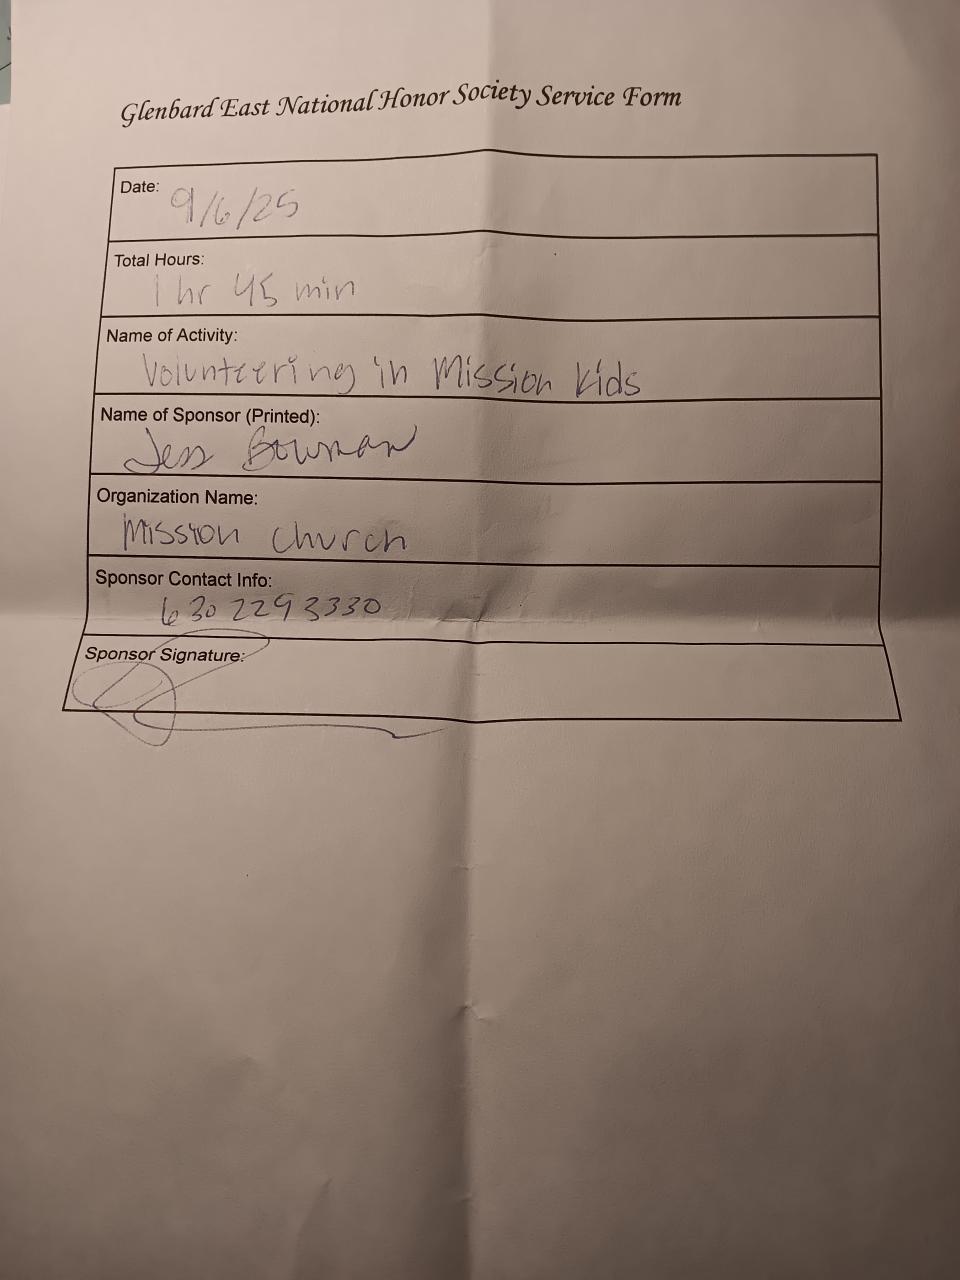 Glenbard East National Honor Society Service Form
Date: 9/6/25
Total Hours:
1 hr 45 min
Name of Activity:
Volunteering in Mission Kids
Name of Sponsor (Printed):
Jess Bowman
Organization Name:
Mission Church
Sponsor Contact Info:
630 229 3330
Sponsor Signature: